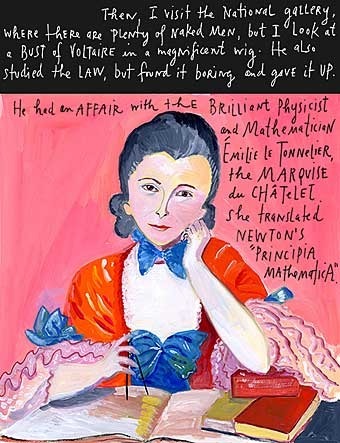 Then, I visit the National gallery,
where there are plenty of naked men, but I look at
a BUST of VOLTAIRE in a magnificent wig. He also
studied the LAW, but found it boring, and gave it UP.
He had an AFFAIR with the BRILLIANT PHYSICIST
and MATHEMATICIAN
ÉMILIE LE TONNELIER,
the MARQUISE
du CHÂTELET.
She translated
NEWTON'S
"PRINCIPIA
MATHEMATICA".